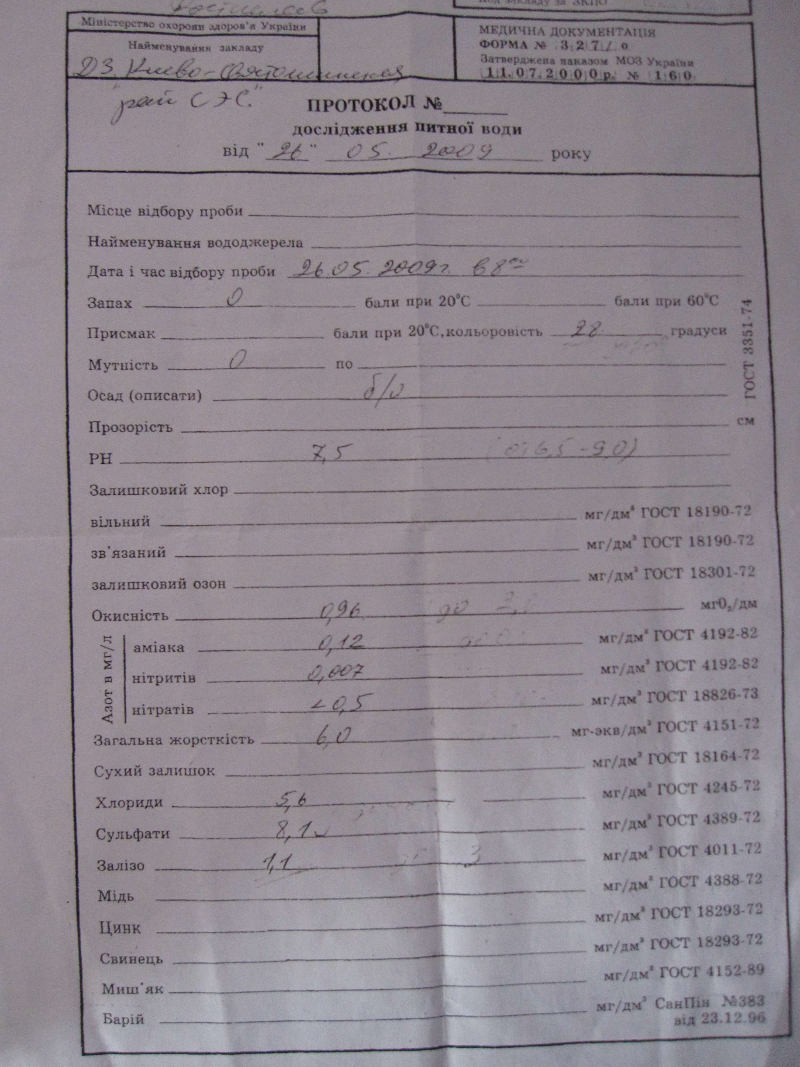 Код закладу за ЗКПО
Міністерство охорони здоров'я України
Найменування закладу
ДЗ. Києво-Святошинская
"рай СЭС."
МЕДИЧНА ДОКУМЕНТАЦІЯ
ФОРМА № 3 2 7 / о
Затверджена наказом МОЗ України
1 1. 0 7. 2 0 0 0 р. № 1 6 0
ПРОТОКОЛ №
дослідження питної води
від "26" 05. 2009 року
Місце відбору проби
Найменування вододжерела
Дата і час відбору проби 26.05.2009г. в 8⁰⁰
Запах 0 бали при 20°С бали при 60°С
Присмак бали при 20°С, кольоровість 28 градуси
Мутність 0 по
ГОСТ 3351-74
Осад (описати) б/о
Прозорість см
РН 7,5 (от 6,5-9,0)
Залишковий хлор
вільний мг/дм³ ГОСТ 18190-72
зв'язаний мг/дм³ ГОСТ 18190-72
залишковий озон мг/дм³ ГОСТ 18301-72
Окисність 0,96 до мгО₂/дм
Азот в мг/л
аміака 0,12 мг/дм³ ГОСТ 4192-82
нітритів 0,007 мг/дм³ ГОСТ 4192-82
нітратів <0,5 мг/дм³ ГОСТ 18826-73
Загальна жорсткість 6,0 мг-экв/дм³ ГОСТ 4151-72
Сухий залишок мг/дм³ ГОСТ 18164-72
Хлориди 5,6 мг/дм³ ГОСТ 4245-72
Сульфати 8,1 мг/дм³ ГОСТ 4389-72
Залізо 1,1 мг/дм³ ГОСТ 4011-72
Мідь мг/дм³ ГОСТ 4388-72
Цинк мг/дм³ ГОСТ 18293-72
Свинець мг/дм³ ГОСТ 18293-72
Миш'як мг/дм³ ГОСТ 4152-89
Барій мг/дм³ СанПін №383
від 23.12.96